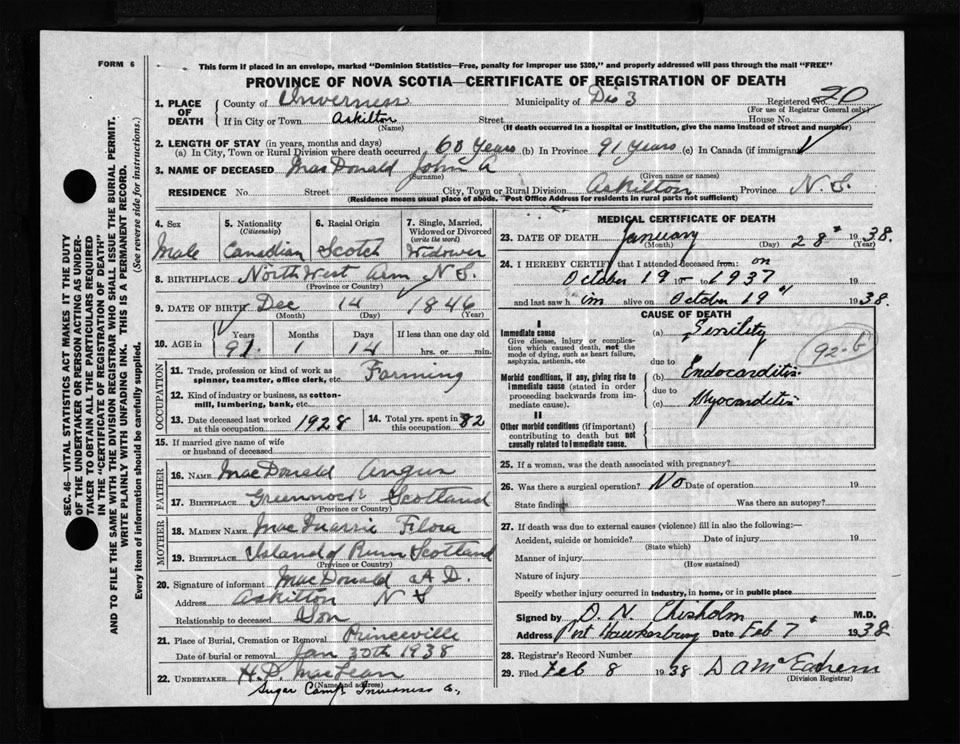 FORM 6
This form if placed in an envelope, marked "Dominion Statistics—Free, penalty for improper use $300," and properly addressed will pass through the mail "FREE"
PROVINCE OF NOVA SCOTIA—CERTIFICATE OF REGISTRATION OF DEATH
1. PLACE OF DEATH County of Inverness Municipality of Dis 3 Registered No. 20
(For use of Registrar General only)
If in City or Town Askilton Street House No.
(Name) (If death occurred in a hospital or institution, give the name instead of street and number)
2. LENGTH OF STAY (in years, months and days)
(a) In City, Town or Rural Division where death occurred 60 Years (b) In Province 91 years (c) In Canada (if immigrant)
3. NAME OF DECEASED MacDonald John A
(Surname) (Given name or names)
RESIDENCE No. Street City, Town or Rural Division Askilton Province N.S.
(Residence means usual place of abode. "Post Office Address for residents in rural parts not sufficient)
4. Sex Male
5. Nationality (Citizenship) Canadian
6. Racial Origin Scotch
7. Single, Married, Widowed or Divorced (write the word) Widower
8. BIRTHPLACE North West Arm N.S.
(Province or Country)
9. DATE OF BIRTH Dec 14 1846
(Month) (Day) (Year)
10. AGE in Years 91 Months 1 Days 14 If less than one day old hrs. or min.
OCCUPATION
11. Trade, profession or kind of work as spinner, teamster, office clerk, etc. Farming
12. Kind of industry or business, as cotton-mill, lumbering, bank, etc.
13. Date deceased last worked at this occupation 1928
14. Total yrs. spent in this occupation 82
15. If married give name of wife or husband of deceased
FATHER
16. NAME MacDonald Angus
17. BIRTHPLACE Greennock Scotland
(Province or Country)
MOTHER
18. MAIDEN NAME MacQuarrie Flora
19. BIRTHPLACE Island of Rum Scotland
(Province or Country)
20. Signature of informant MacDonald A D.
Address Askilton N S
Relationship to deceased Son
21. Place of Burial, Cremation or Removal Princeville
Date of burial or removal Jan 30th 1938
22. UNDERTAKER H.D. MacLean
(Name and address)
Sugar Camp Inverness Co.,
MEDICAL CERTIFICATE OF DEATH
23. DATE OF DEATH January 28th 1938.
(Month) (Day) (Year)
24. I HEREBY CERTIFY that I attended deceased from: on
October 19 to 1937
and last saw him alive on October 19th 1938.
CAUSE OF DEATH
I
Immediate cause
Give disease, injury or complication which caused death, not the mode of dying, such as heart failure, asphyxia, asthenia, etc
(a) Senility
92-b
due to
Morbid conditions, if any, giving rise to immediate cause (stated in order proceeding backwards from immediate cause).
(b) Endocarditis
due to
(c) Myocarditis
II
Other morbid conditions (if important) contributing to death but not causally related to immediate cause.
25. If a woman, was the death associated with pregnancy?
26. Was there a surgical operation? No Date of operation 19
State findings Was there an autopsy?
27. If death was due to external causes (violence) fill in also the following:—
Accident, suicide or homicide? Date of injury 19
(State which)
Manner of injury
(How sustained)
Nature of injury
Specify whether injury occurred in industry, in home, or in public place
Signed by D. N. Chisholm M.D.
Address Port Hawkesbury Date Feb 7 1938.
28. Registrar's Record Number
29. Filed Feb 8 1938 D A McEachern
(Division Registrar)
SEC. 46—VITAL STATISTICS ACT MAKES IT THE DUTY
OF THE UNDERTAKER OR PERSON ACTING AS UNDER-
TAKER TO OBTAIN ALL THE PARTICULARS REQUIRED
IN THE "CERTIFICATE OF REGISTRATION OF DEATH"
AND TO FILE THE SAME WITH THE DIVISION REGISTRAR WHO SHALL ISSUE THE BURIAL PERMIT.
WRITE PLAINLY WITH UNFADING INK. THIS IS A PERMANENT RECORD.
Every item of information should be carefully supplied. (See reverse side for instructions.)